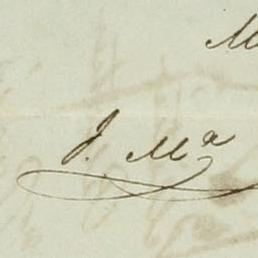 M
J. Mª